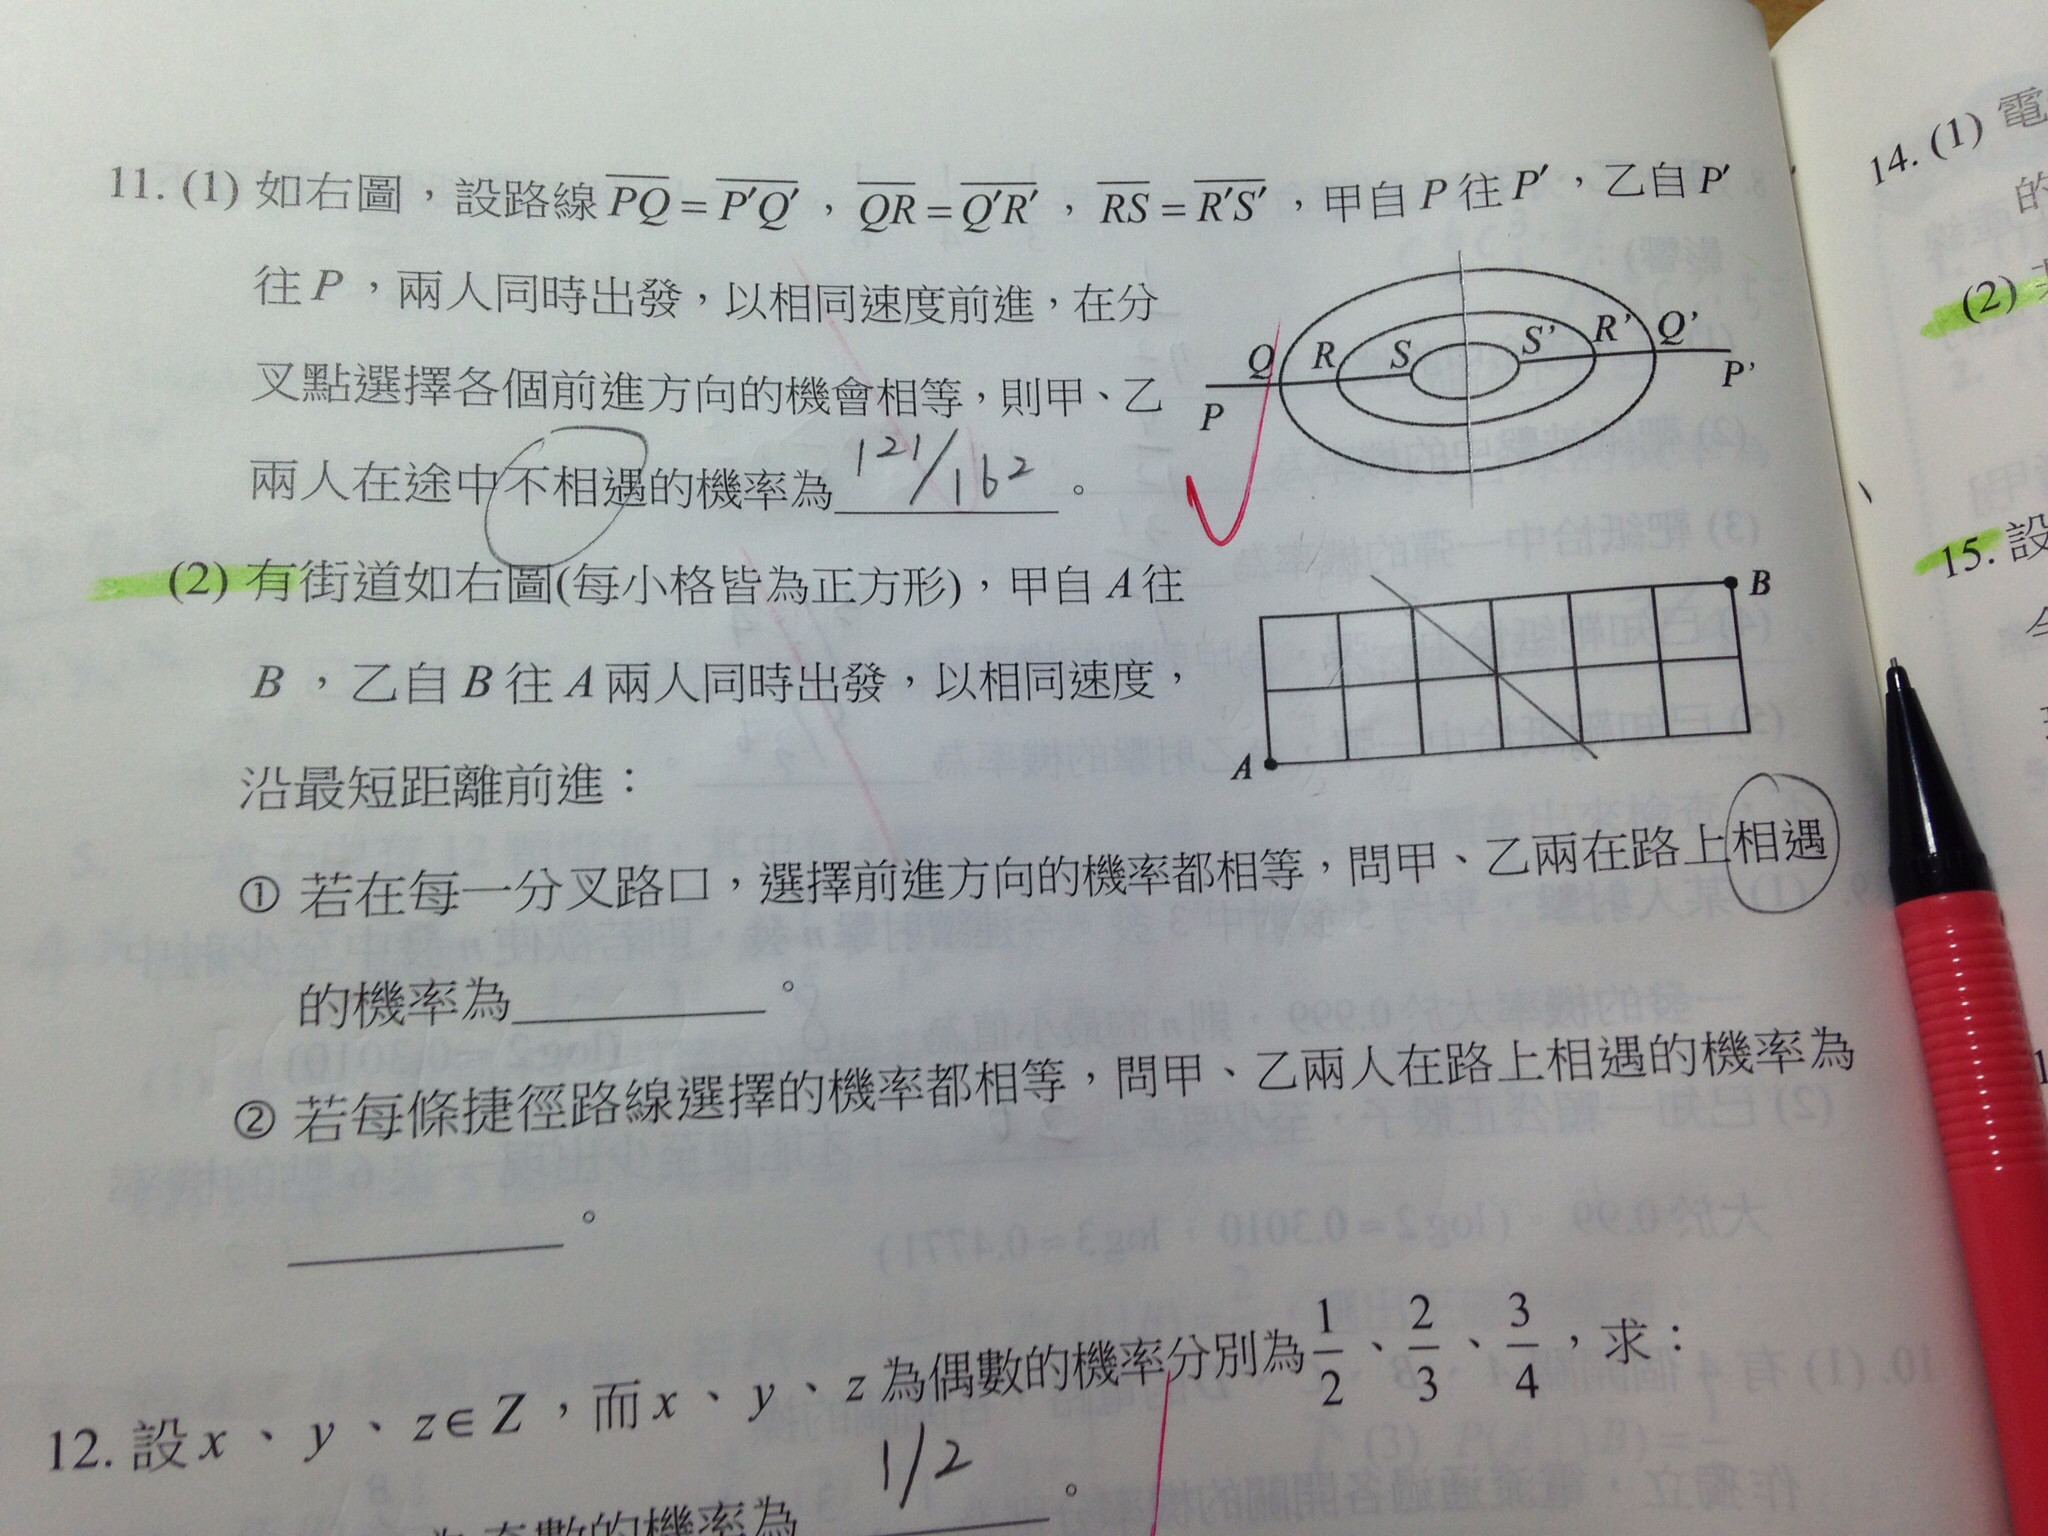 11. (1) 如右圖，設路線 PQ = P'Q'，QR = Q'R'，RS = R'S'，甲自 P 往 P'，乙自 P'
往 P，兩人同時出發，以相同速度前進，在分
叉點選擇各個前進方向的機會相等，則甲、乙
兩人在途中不相遇的機率為 121/162 。
Q R S S' R' Q'
P P'
(2) 有街道如右圖(每小格皆為正方形)，甲自 A 往
B，乙自 B 往 A 兩人同時出發，以相同速度，
沿最短距離前進：
B
A
① 若在每一分叉路口，選擇前進方向的機率都相等，問甲、乙兩在路上相遇
的機率為 。
② 若每條捷徑路線選擇的機率都相等，問甲、乙兩人在路上相遇的機率為
。
12. 設 x、y、z∈Z，而 x、y、z 為偶數的機率分別為 1/2、2/3、3/4，求：
奇數的機率為 1/2 。
14. (1) 電
的
(2)
15. 設